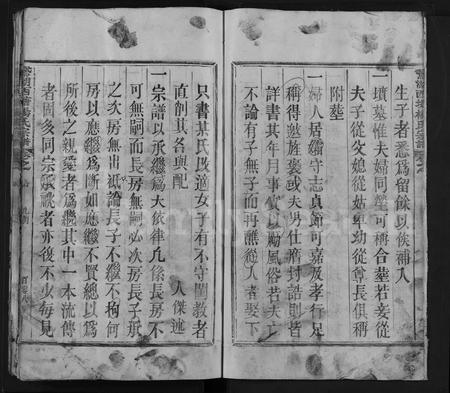 生子者悉爲留餘以俟補入
一墳墓惟夫婦同塋可稱合塟若妾從
夫子從父媳從姑卑幼從尊長俱稱
附塟
一婦人居孀守志貞節可嘉及孝行足
稱得邀旌褒或夫男仕膺封誥則皆
詳書其年月事實以勵風俗若夫亡
不論有子無子而再醮從人者娶下
只書某氏改適女子有不守閨教者
直削其名與配
人傑述
一宗譜以承繼爲大故律凡係長房不
可無嗣而長房無嗣必次房長子承
之次房無出祗論長子不繼不拘何
房以應繼爲斷如應繼不賢總以爲
所後之親愛者爲繼其中一本流傳
者固多同宗承祧者亦復不少每見